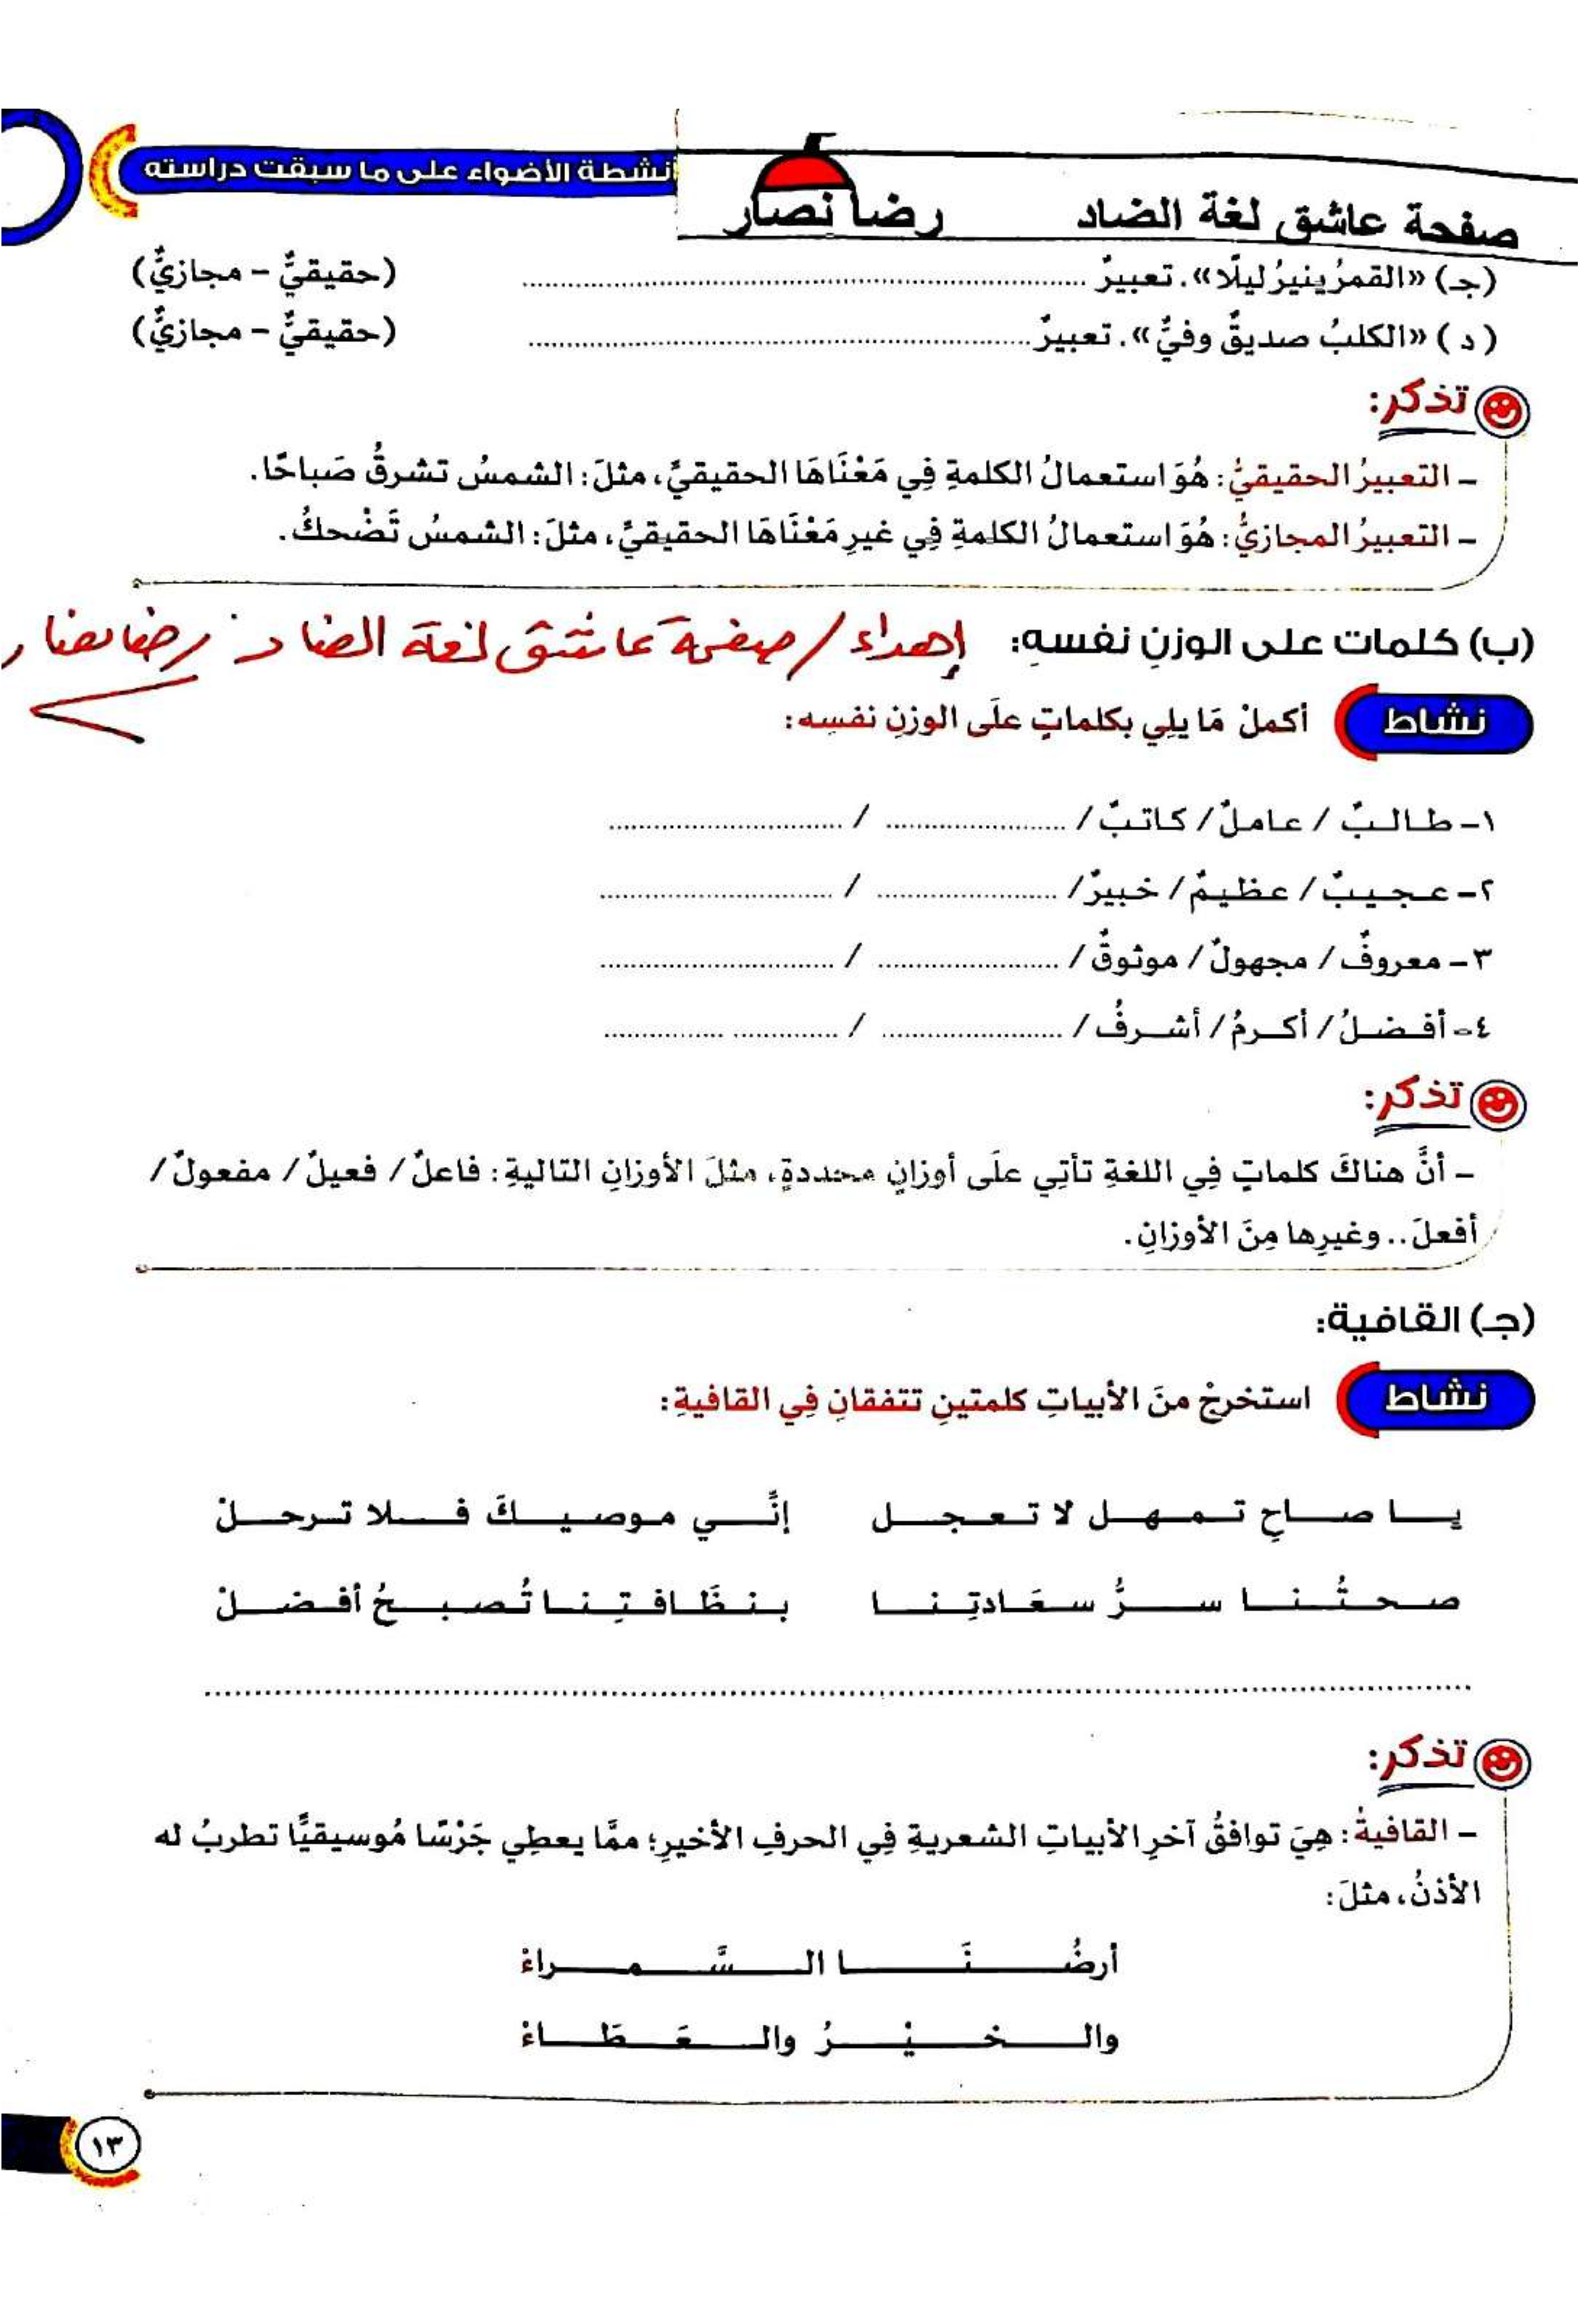 أنشطة الأضواء على ما سبقت دراسته
صفحة عاشق لغة الضاد رضا نصار
(جـ) «القمرُ ينيرُ ليلًا». تعبيرٌ ........................ (حقيقيٌّ – مجازيٌّ)
(د) «الكلبُ صديقٌ وفيٌّ». تعبيرٌ ........................ (حقيقيٌّ – مجازيٌّ)
تذكر:
– التعبيرُ الحقيقيُّ: هُوَ استعمالُ الكلمةِ فِي مَعْنَاهَا الحقيقيِّ، مثلَ: الشمسُ تشرقُ صَباحًا.
– التعبيرُ المجازيُّ: هُوَ استعمالُ الكلمةِ فِي غيرِ مَعْنَاهَا الحقيقيِّ، مثلَ: الشمسُ تَضْحكُ.
(ب) كلمات على الوزنِ نفسهِ: إهداء / صفحة عاشق لغة الضاد رضا نصار
نشاط أكملْ مَا يلِي بكلماتٍ علَى الوزنِ نفسِه:
١– طالبٌ / عاملٌ / كاتبٌ / ............ / ............
٢– عجيبٌ / عظيمٌ / خبيرٌ / ............ / ............
٣– معروفٌ / مجهولٌ / موثوقٌ / ............ / ............
٤– أفضلُ / أكرمُ / أشرفُ / ............ / ............
تذكر:
– أنَّ هناكَ كلماتٍ فِي اللغةِ تأتِي علَى أوزانٍ محددةٍ، مثلَ الأوزانِ التاليةِ: فاعلٌ / فعيلٌ / مفعولٌ /
أفعلَ.. وغيرِها مِنَ الأوزانِ.
(جـ) القافية:
نشاط استخرجْ منَ الأبياتِ كلمتينِ تتفقانِ فِي القافيةِ:
يا صاحِ تمهل لا تعجل إنِّي موصيكَ فلا ترحلْ
صحتُنا سرُّ سعَادتِنا بنظَافتِنا تُصبحُ أفضلْ
........................
تذكر:
– القافيةُ: هِيَ توافقُ آخرِ الأبياتِ الشعريةِ فِي الحرفِ الأخيرِ؛ ممَّا يعطِي جَرْسًا مُوسيقيًّا تطربُ له
الأذنُ، مثلَ:
أرضُنَا السَّمراءْ
والخيْرُ والعَطَاءْ
١٣